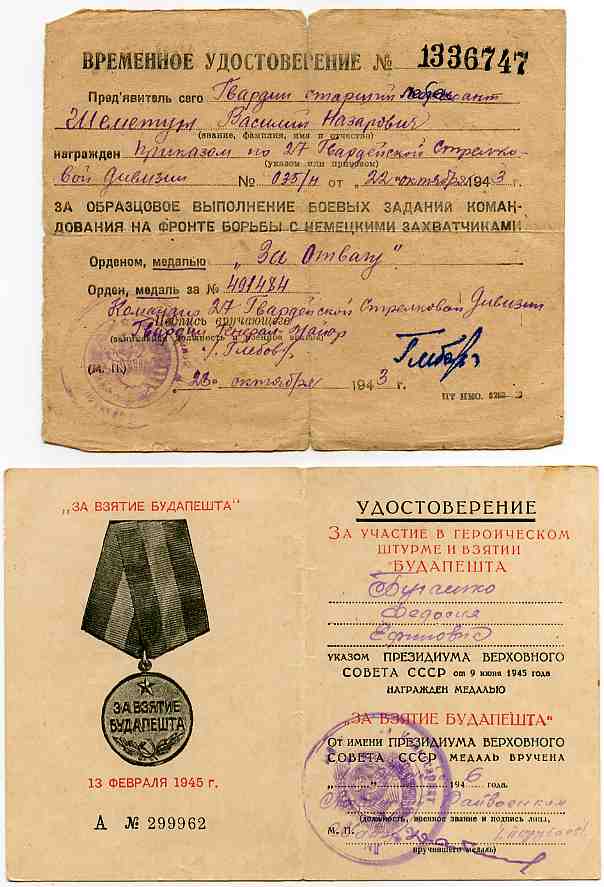 ВРЕМЕННОЕ УДОСТОВЕРЕНИЕ № 1336747
Пред'явитель сего Гвардии старший лейтенант
Шеметун Василий Назарович
(звание, фамилия, имя и отчество)
награжден приказом по 27 Гвардейской Стрелко-
(указом или приказом)
вой Дивизии № 035/н от „22" октября 1943 г.
ЗА ОБРАЗЦОВОЕ ВЫПОЛНЕНИЕ БОЕВЫХ ЗАДАНИЙ КОМАН-
ДОВАНИЯ НА ФРОНТЕ БОРЬБЫ С НЕМЕЦКИМИ ЗАХВАТЧИКАМИ
Орденом, медалью „За Отвагу"
Орден, медаль за № 491484
Командир 27 Гвардейской Стрелковой Дивизии
Подпись вручающего
Гвардии Генерал-Майор
должность и военное звание)
Глебов
(М. П.)
„23" октября 1943 г.
„ЗА ВЗЯТИЕ БУДАПЕШТА"
ЗА ВЗЯТИЕ
БУДАПЕШТА
13 ФЕВРАЛЯ 1945 г.
А № 299962
УДОСТОВЕРЕНИЕ
ЗА УЧАСТИЕ В ГЕРОИЧЕСКОМ
ШТУРМЕ И ВЗЯТИИ
БУДАПЕШТА
Федосия
Ефимович
УКАЗОМ ПРЕЗИДИУМА ВЕРХОВНОГО
СОВЕТА СССР от 9 июня 1945 года
НАГРАЖДЕН МЕДАЛЬЮ
„ЗА ВЗЯТИЕ БУДАПЕШТА"
ОТ ИМЕНИ ПРЕЗИДИУМА ВЕРХОВНОГО
СОВЕТА СССР МЕДАЛЬ ВРУЧЕНА
1946 года.
Райвоенком
(должность, военное звание и подпись лица,
М. П.
вручившего медаль)